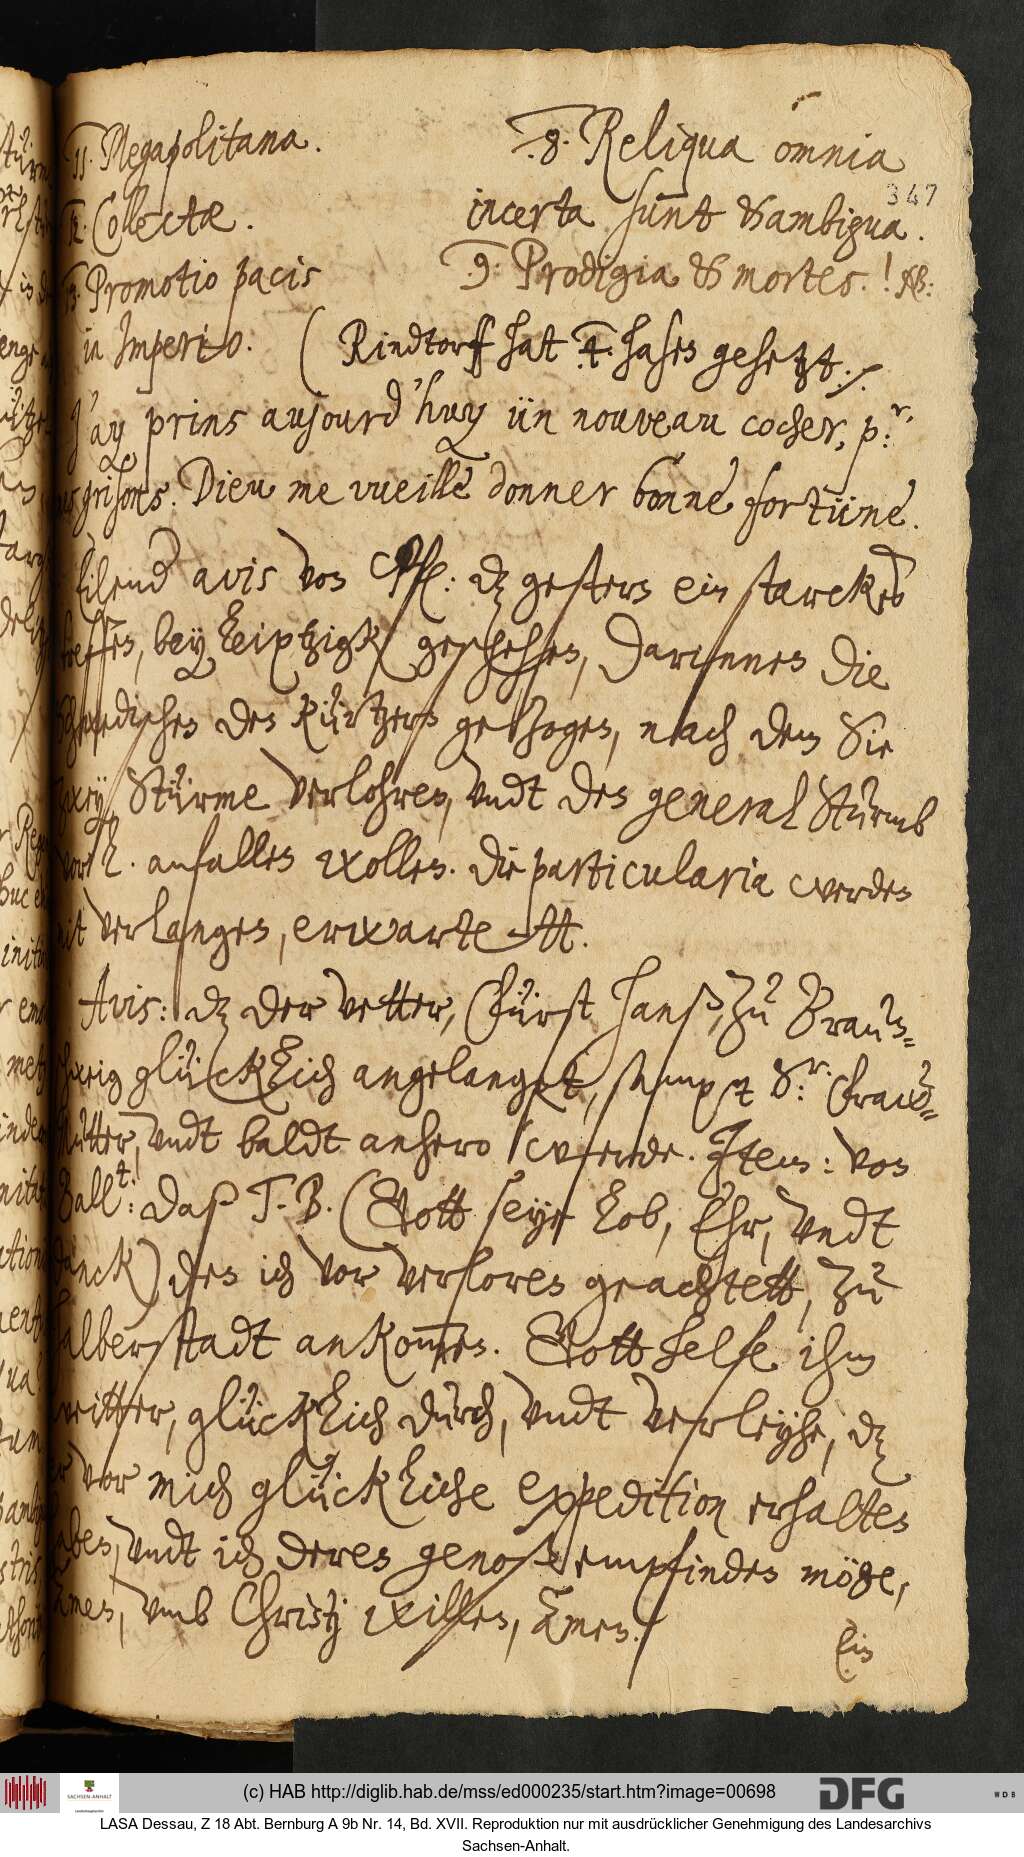 11. Megapolitana.
12. Collectæ.
13. Promotio pacis
in Imperio.
8. Reliqua omnia
347
incerta sunt & ambigua.
9. Prodigia & mortes.! NB:
(Rindtorff hat 4. hasen gehetzt./.
J'ay prins aujourd'huy ün nouveau cocher, p:r
mes grisons. Dieu me vueille donner bonne fortüne.
Eilend avis von : dz gestern ein starckes
treffen, bey Leiptzigk geschehen, Darinnen die
Schwedischen den kürtzern gezogen, nach dem Sie
zwey Stürme verlohren, vndt den general Sturmb
vor L. anfallen wollen. Die particularia werden
mit verlangen, erwartett.
Avis: dz der vetter, Fürst Hanß, zu Braun=
schweig glücklich angelanget, sampt S.r Fraw=
Mutter, vndt baldt anhero werde. Item: von
Ball.t: Daß T. B. (Gott seye Lob, Ehr, vndt
danck) den ich vor verloren geachtett, zu
halberstadt ankommen. Gott helfe ihm
weitter, glücklich durch, vndt verleyhe, dz
er vor mich glückliche expedition erhalten
haben, vndt ich deren genoß empfinden möge,
Amen, vmb Christj willen, Amen./
Ein
(c) HAB http://diglib.hab.de/mss/ed000235/start.htm?image=00698
SACHSEN-ANHALT
DFG
WDB
LASA Dessau, Z 18 Abt. Bernburg A 9b Nr. 14, Bd. XVII. Reproduktion nur mit ausdrücklicher Genehmigung des Landesarchivs
Sachsen-Anhalt.